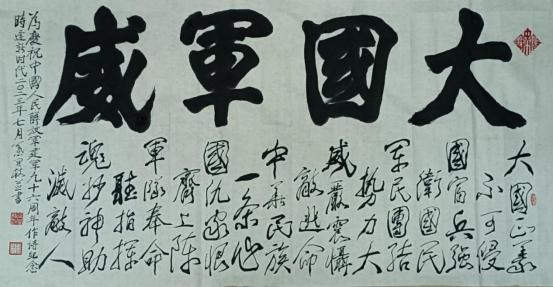 大國軍威
大国正義
不可侵
國富兵強
衛國民
軍民團结
势力大
威嚴震懾
敵逃命
中華民族
一条心
國仇家恨
齊上陣
軍隊奉命
聽指揮
魂神助
滅敵人
為慶祝中國人民解放軍建軍九十六周年作詩紀念
時逢新时代二〇二三年七月書